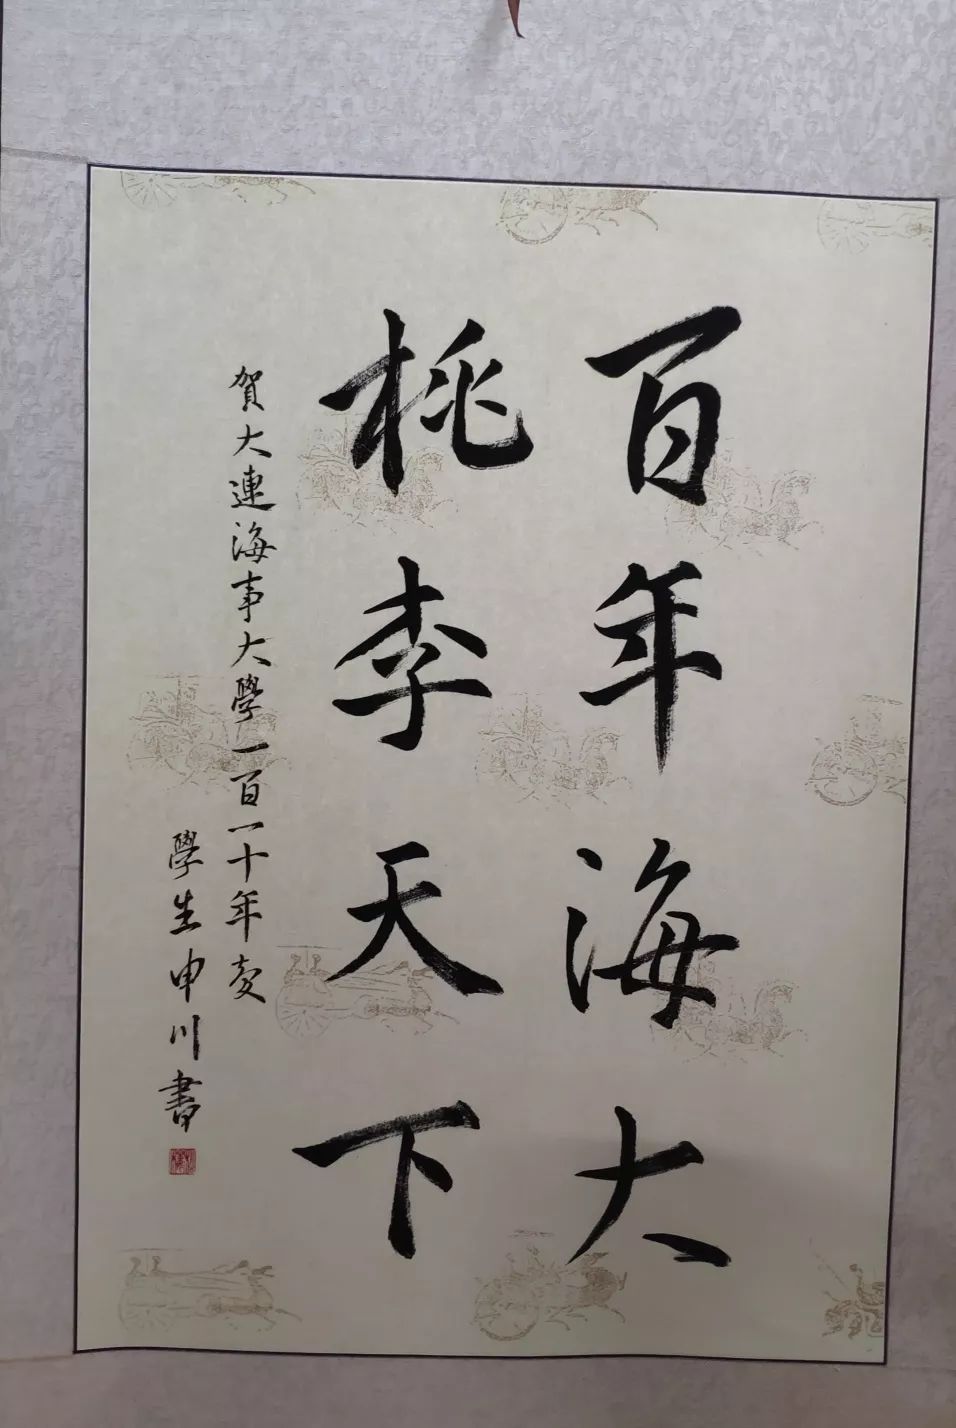 百年海大
桃李天下
賀大連海事大學一百一十年慶
學生申川書